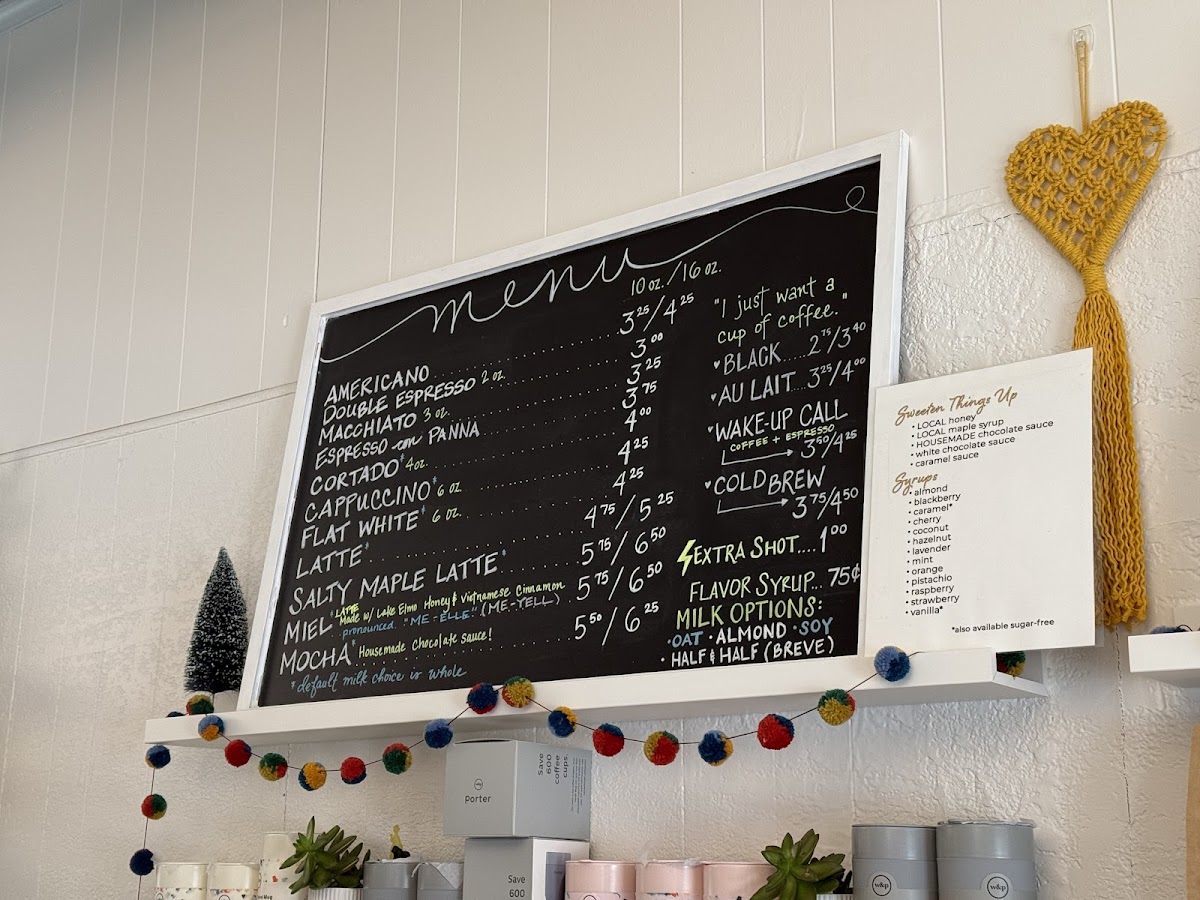 menu
10 oz. / 16 oz.
AMERICANO 3²⁵/4²⁵
DOUBLE ESPRESSO 2 oz. 3⁰⁰
MACCHIATO 3 oz. 3²⁵
ESPRESSO con PANNA 3⁷⁵
CORTADO* 4oz. 4⁰⁰
CAPPUCCINO* 6 oz. 4²⁵
FLAT WHITE* 6 oz. 4²⁵
LATTE* 4⁷⁵/5²⁵
SALTY MAPLE LATTE* 5⁷⁵/6⁵⁰
MIEL* LATTE Made w/ Lake Elmo Honey & Vietnamese Cinnamon 5⁷⁵/6⁵⁰
pronounced "ME-ELLE" (ME-YELL)
MOCHA* Housemade Chocolate sauce! 5⁵⁰/6²⁵
*default milk choice is whole
"I just want a
cup of coffee."
BLACK.....2⁷⁵/3⁴⁰
AU LAIT....3²⁵/4⁰⁰
WAKE-UP CALL
COFFEE + ESPRESSO
3⁵⁰/4²⁵
COLD BREW
3⁷⁵/4⁵⁰
EXTRA SHOT....1⁰⁰
FLAVOR SYRUP... 75¢
MILK OPTIONS:
·OAT ·ALMOND ·SOY
·HALF & HALF (BREVE)
Sweeten Things Up
• LOCAL honey
• LOCAL maple syrup
• HOUSEMADE chocolate sauce
• white chocolate sauce
• caramel sauce
Syrups
• almond
• blackberry
• caramel*
• cherry
• coconut
• hazelnut
• lavender
• mint
• orange
• pistachio
• raspberry
• strawberry
• vanilla*
*also available sugar-free
w&p
porter
Save
600
coffee
cups.
Save
600
w&p
w&p